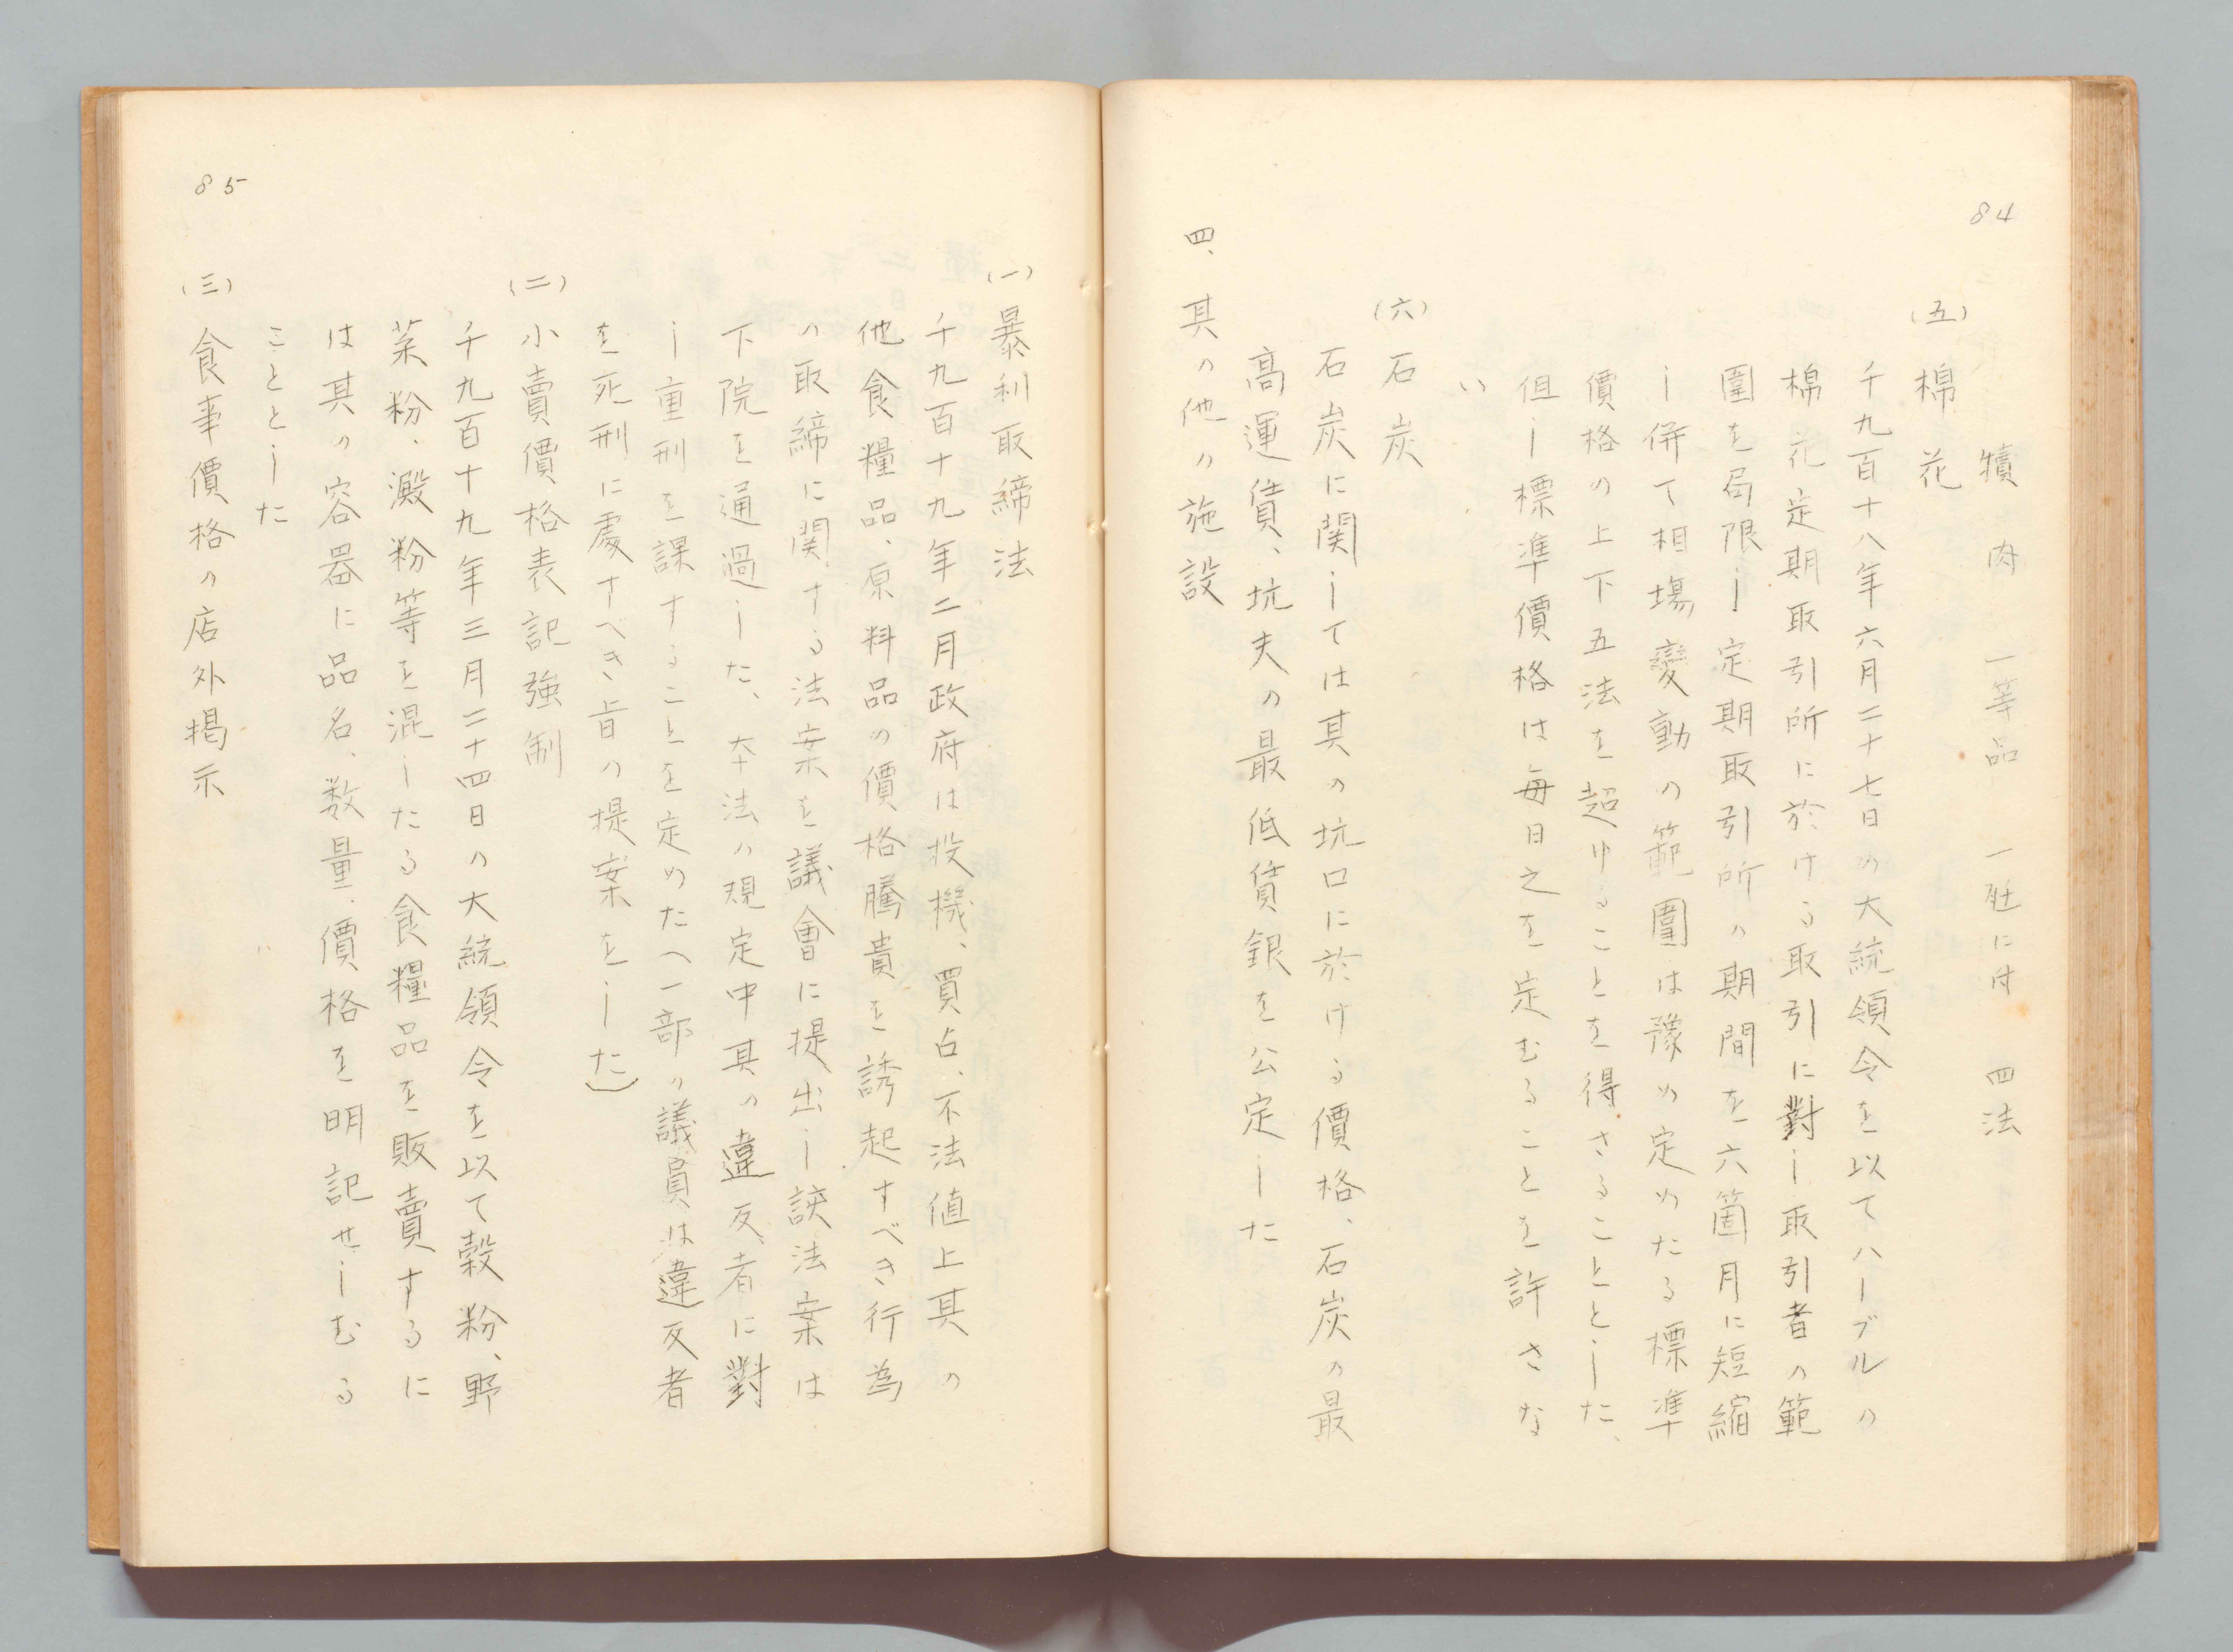 84
犢肉 一等品 一瓩に付 四法
(五)棉花
千九百十八年六月二十七日の大統領令を以てハーブルの
棉花定期取引所に於ける取引に對し取引者の範
圍を局限し定期取引所の期間を六箇月に短縮
し併て相場變動の範圍は豫め定めたる標準
價格の上下五法を超ゆることを得さることとした、
但し標準價格は每日之を定むることを許さな
い
(六)石炭
石炭に関しては其の坑口に於ける價格、石炭の最
高運賃、坑夫の最低賃銀を公定した
四、其の他の施設
(一)暴利取締法
千九百十九年二月政府は投機、買占、不法値上其の
他食糧品、原料品の價格騰貴を誘起すべき行為
の取締に関する法案を議會に提出し該法案は
下院を通過した、本法の規定中其の違反者に對
し重刑を課することを定めた(一部の議員は違反者
を死刑に處すべき旨の提案をした)
(二)小賣價格表記強制
千九百十九年三月二十四日の大統領令を以て穀粉、野
菜粉、澱粉等を混したる食糧品を販賣するに
は其の容器に品名、数量、價格を明記せしむる
こととした
(三)食事價格の店外掲示
85